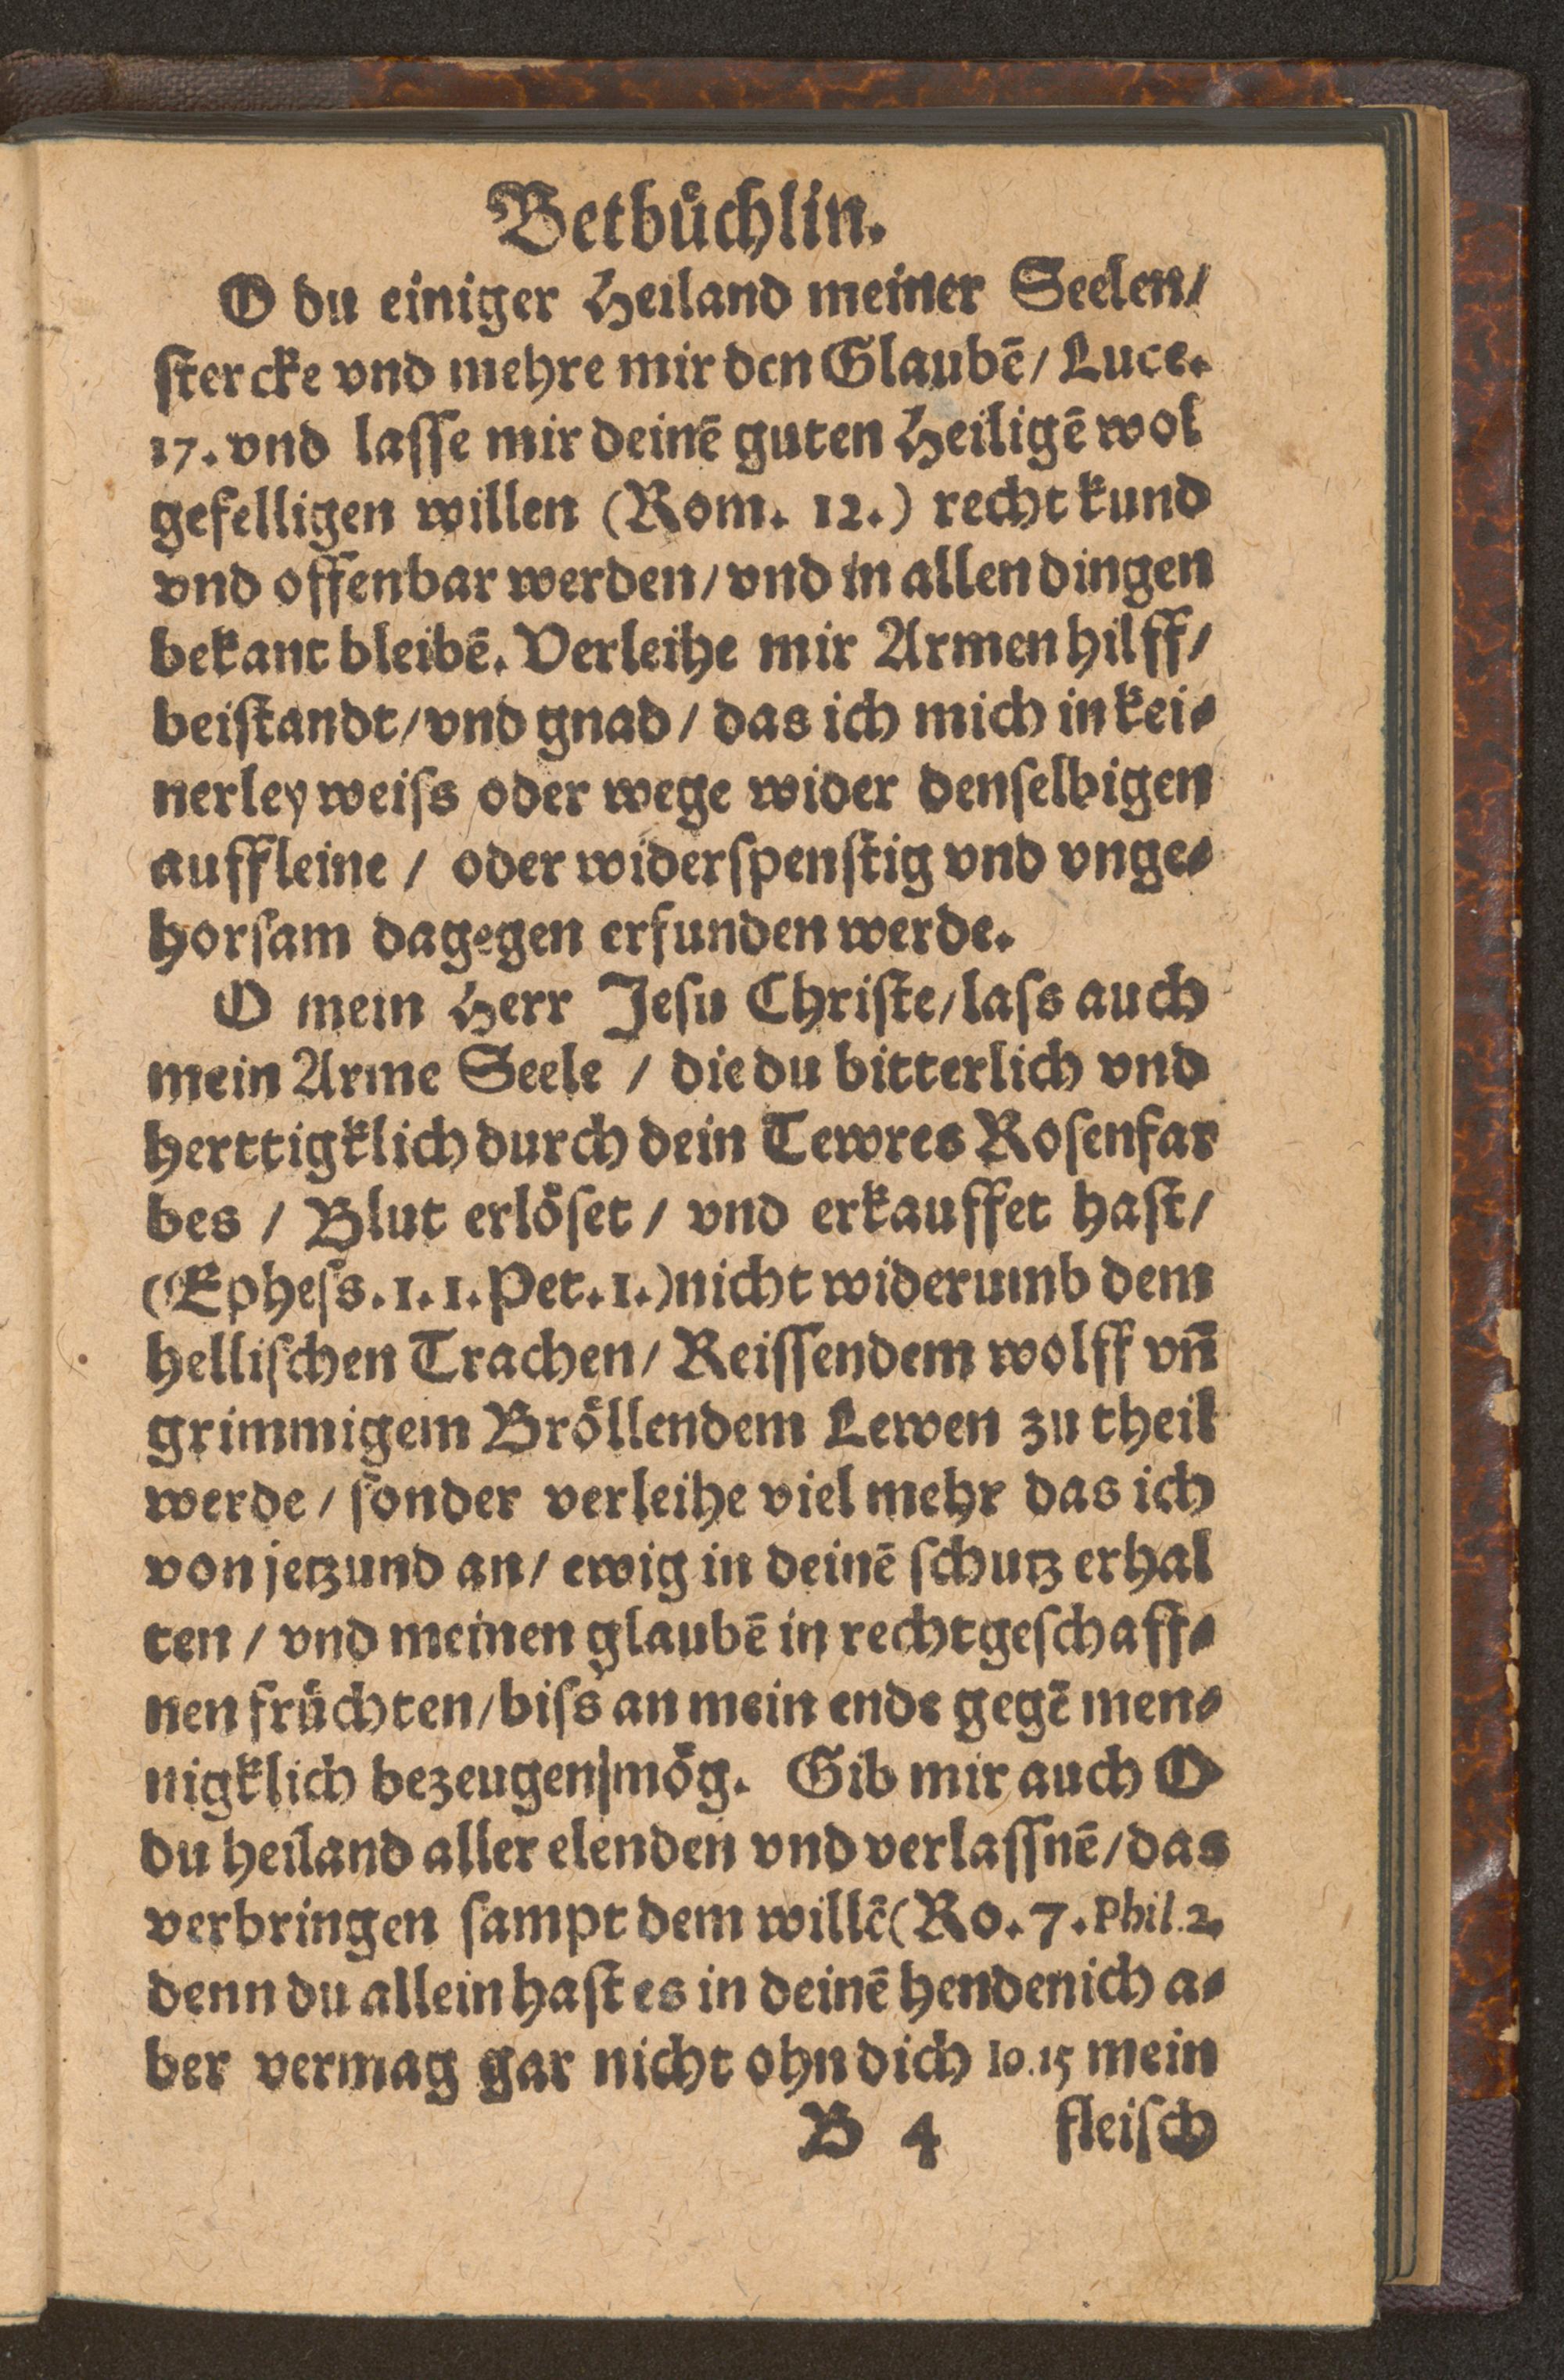 Betbuͤchlin.
O du einiger Heiland meiner Seelen/
ſtercke vnd mehre mir den Glaubē/ Luce.
17. vnd laſſe mir deinē guten Heiligē wol
gefelligen willen (Rom. 12.) recht kund
vnd offenbar werden/ vnd in allen dingen
bekant bleibē. Verleihe mir Armen hilff/
beiſtandt/ vnd gnad/ das ich mich in kei⸗
nerley weiſs oder wege wider denſelbigen
auffleine/ oder widerſpenſtig vnd vnge⸗
horſam dagegen erfunden werde.
O mein Herr Jeſu Chriſte/ laſs auch
mein Arme Seele / die du bitterlich vnd
herttigklich durch dein Tewres Roſenfar
bes / Blut erloͤſet / vnd erkauffet haſt/
(Epheſs. 1. 1. Pet. 1.) nicht widerumb dem
helliſchen Trachen/ Reiſſendem wolff vn̄
grimmigem Broͤllendem Lewen zu theil
werde / ſonder verleihe viel mehr das ich
von jetzund an/ ewig in deinē ſchutz erhal
ten / vnd meinen glaubē in rechtgeſchaff⸗
nen fruͤchten/ biſs an mein ende gegē men⸗
nigklich bezeugen moͤg. Gib mir auch O
du heiland aller elenden vnd verlaſſnē/ das
verbringen ſampt dem willē (Ro. 7. Phil. 2.
denn du allein haſt es in deinē henden ich a⸗
ber vermag gar nicht ohn dich Io. 15 mein
B 4 fleiſch